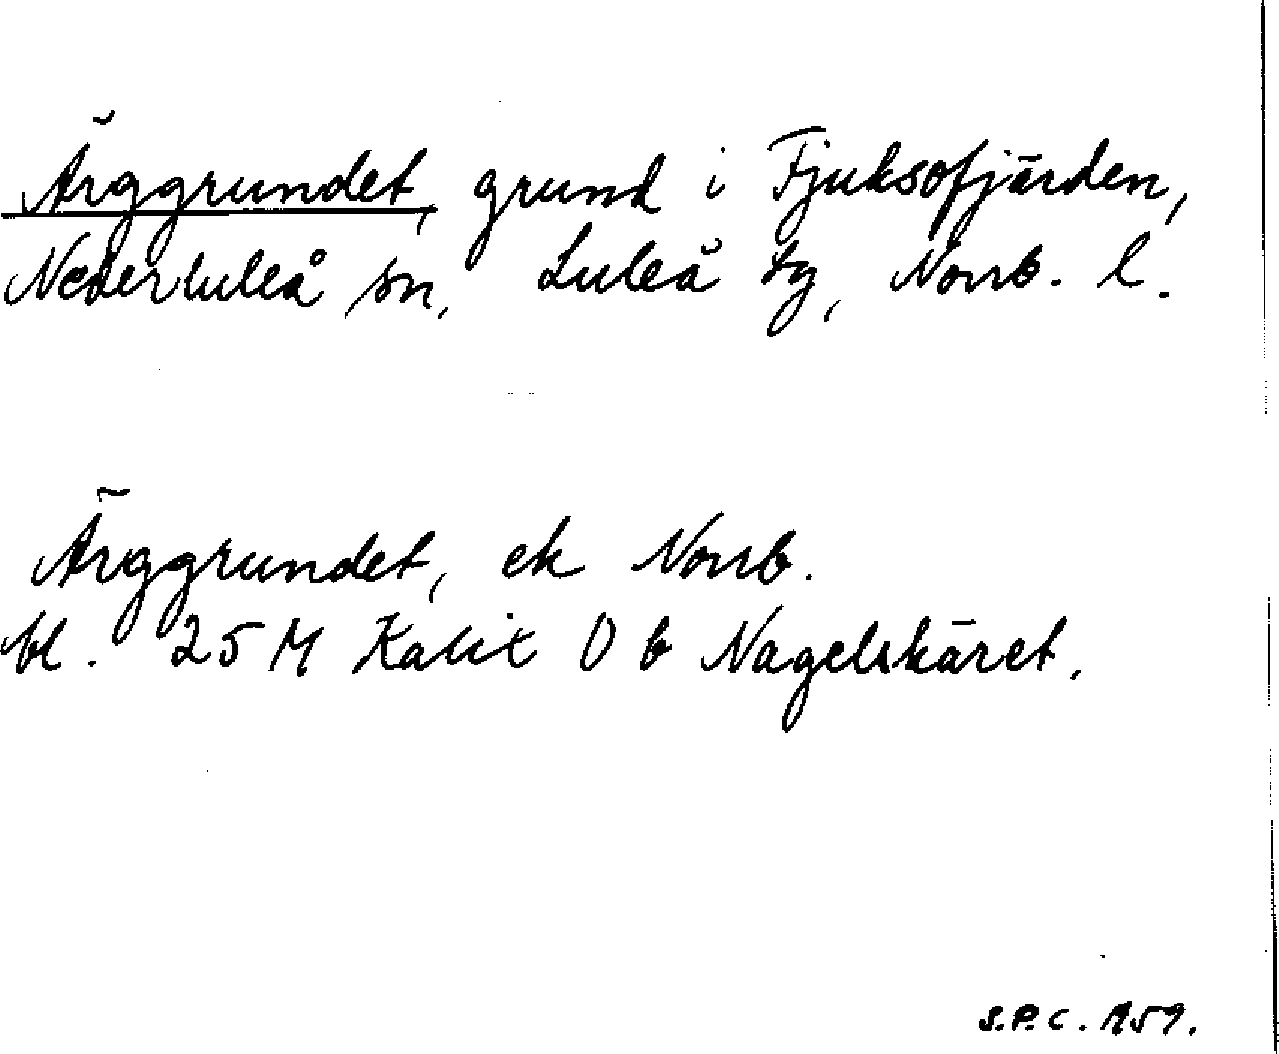 Ärggrundet, grund i Fjuksofjärden,
Nederluleå sn, Luleå tg, Norrb. l.
Ärggrundet, ek Norrb.
bl. 25 M Kalix O b Nagelskäret.
S.P.C. 1959.